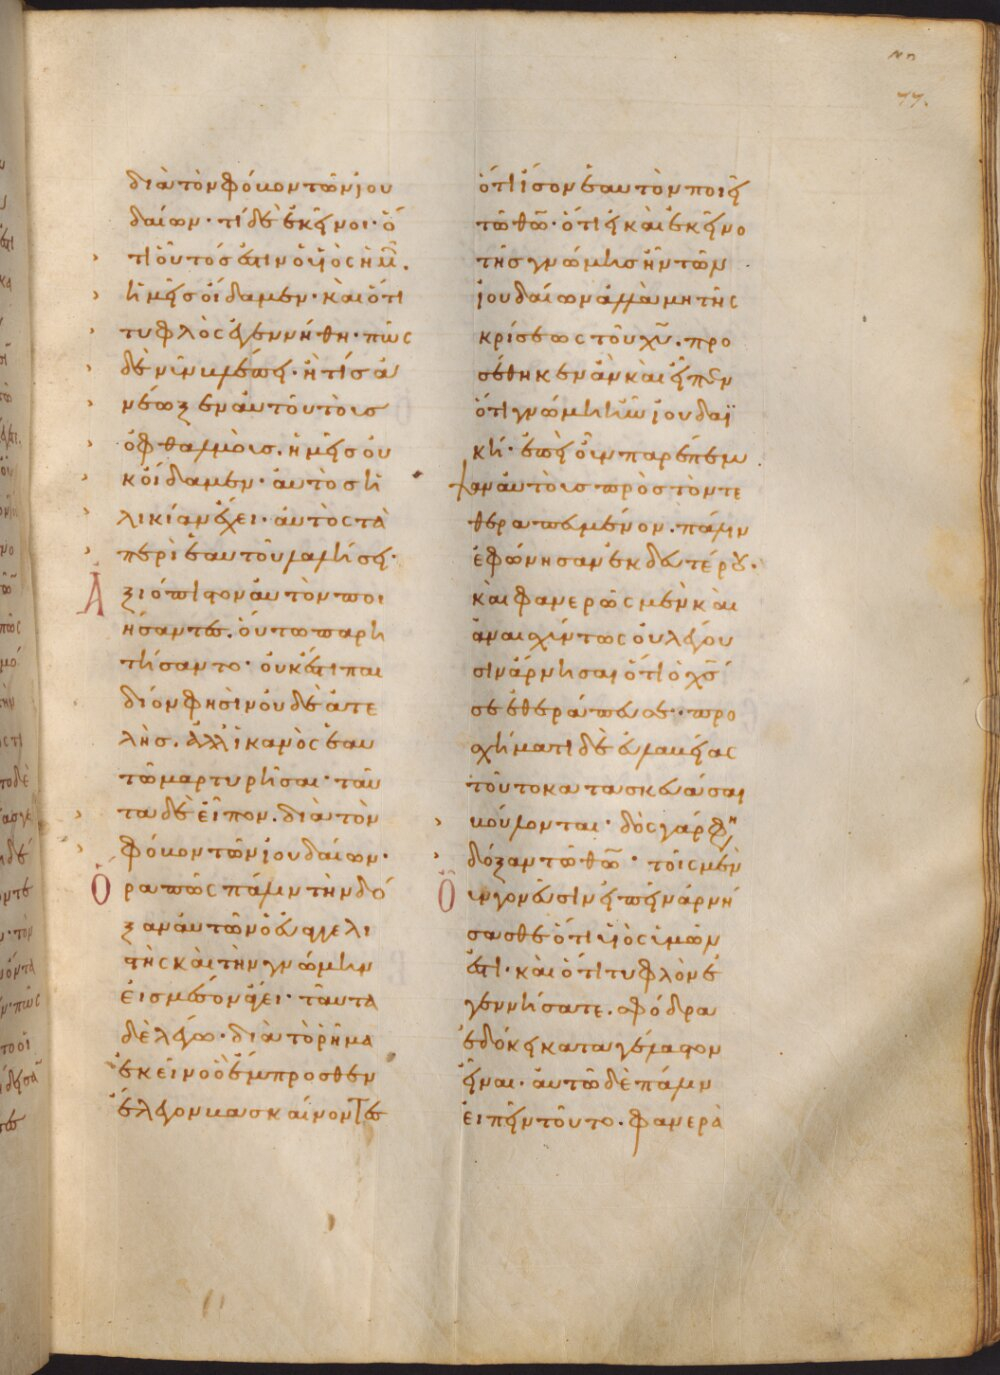 διὰ τὸν φόβον τῶν ἰου
δαίων· τί δὲ ἐκεῖνοι· ὅ
τι οὗτός ἐστιν ὁ υἱὸς ἡμῶν.
ἡμεῖς οἴδαμεν· καὶ ὅτι
τυφλὸς ἐγεννήθη· πῶς
δὲ νῦν βλέπει· ἢ τίς ἀ
νέωξεν αὐτοῦ τοὺς
ὀφθαλμοὺς. ἡμεῖς οὐ
κ οἴδαμεν· αὐτὸς ἡ
λικίαν ἔχει· αὐτὸς τὰ
περὶ ἑαυτοῦ λαλήσει·
Ἀξιόπιστον αὐτὸν ποι
ήσαντες. οὕτω παρη
τήσαντο· οὐκ ἔστι παι
δίον φησὶν οὐδὲ ἀτε
λὴς. ἀλλ' ἱκανὸς ἑαυ
τῶ μαρτυρῆσαι· ταῦ
τα δὲ εἶπον. διὰ τὸν
φόβον τῶν ἰουδαίων·
Ὅρα πῶς πάλιν τὴν δό
ξαν αὐτῶν ὁ εὐαγγελι
στὴς καὶ τὴν γνώμην
εἰς μέσον ἄγει· ταῦτα
δὲ λέγω· διὰ τὸ ῥῆμα
ἐκεῖνο ὃ ἔμπροσθεν
ἔλεγον βασκαίνοντες
ὅτι ἴσον ἑαυτὸν ποιεῖ
τῶ θῶ· ὅτι εἰ καὶ ἐκεῖνο
τῆς γνώμης ἦν τῶν
ἰουδαίων ἀλλὰ μὴ τῆς
κρίσεως τοῦ χῦ. προ
σέθηκεν ἂν καὶ εἶπεν
ὅτι γνώμη ἦν ἰουδαϊ
κή· ἐπεὶ οὖν παρέπεμ
ψαν αὐτοὺς πρὸς τὸν τε
θεραπευμένον. πάλιν
ἐφώνησαν ἐκ δευτέρου·
καὶ φανερῶς μὲν καὶ
ἀναισχύντως οὐ λέγου
σιν ἄρνησαι ὅτι ὁ χς
σε ἐθεράπευσε·· προ
σχήματι δὲ εὐλαβείας
τοῦτο κατασκευάσαι
βούλονται· δὸς γὰρ φη
δόξαν τῶ θῶ· τοῖς μὲν
Οὖν γονεῦσιν εἰπεῖν ἀρνή
σασθε ὅτι υἱὸς ὑμῶν
ἐστι· καὶ ὅτι τυφλὸν ἐ
γεννήσατε. σφόδρα
ἐδόκει καταγέλαστον
εἶναι· αὐτῶ δὲ πάλιν
εἰπεῖν τοῦτο. φανερὰ
77.